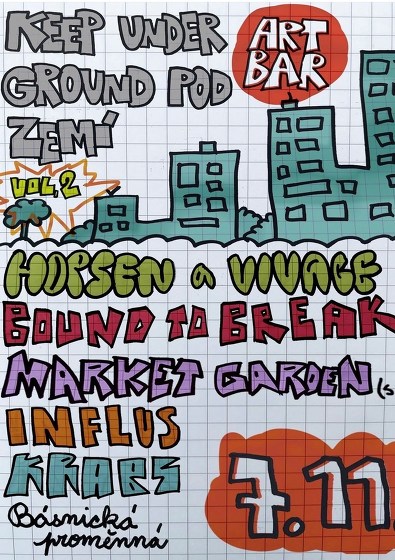 KEEP UNDER
GROUND POD
ZEMÍ
ART
BAR
VOL, 2
HOPSEN a VIVAGE
BOUND TO BREAK
MARKET GARDEN (s
INFLUS
KRABS
Básnická
proměnná
7.11.